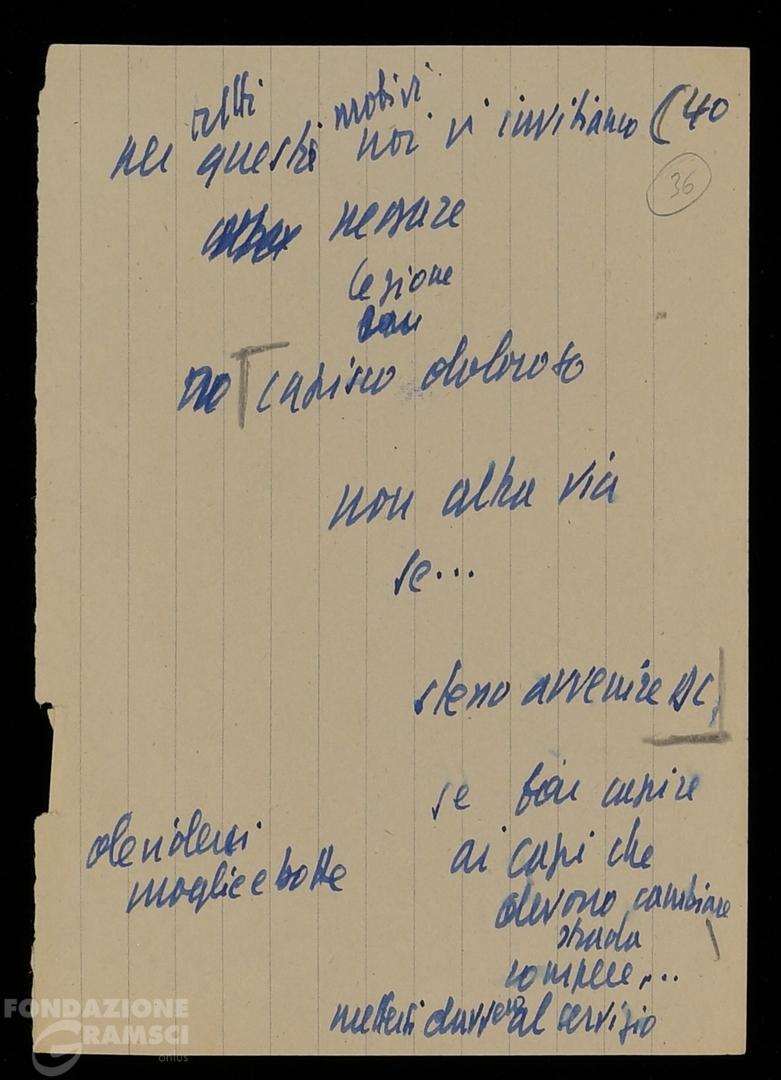 tutti motivi
per questi noi vi invitiamo (40
36
pensare
lezione
no capisco doloroso
non altra via
se...
stesso avvenire DC
se fai capire
ai capi che
devono cambiare
strada
rompere...
mettersi davvero al servizio
desiderosi
moglie e botte
FONDAZIONE
GRAMSCI
onlus